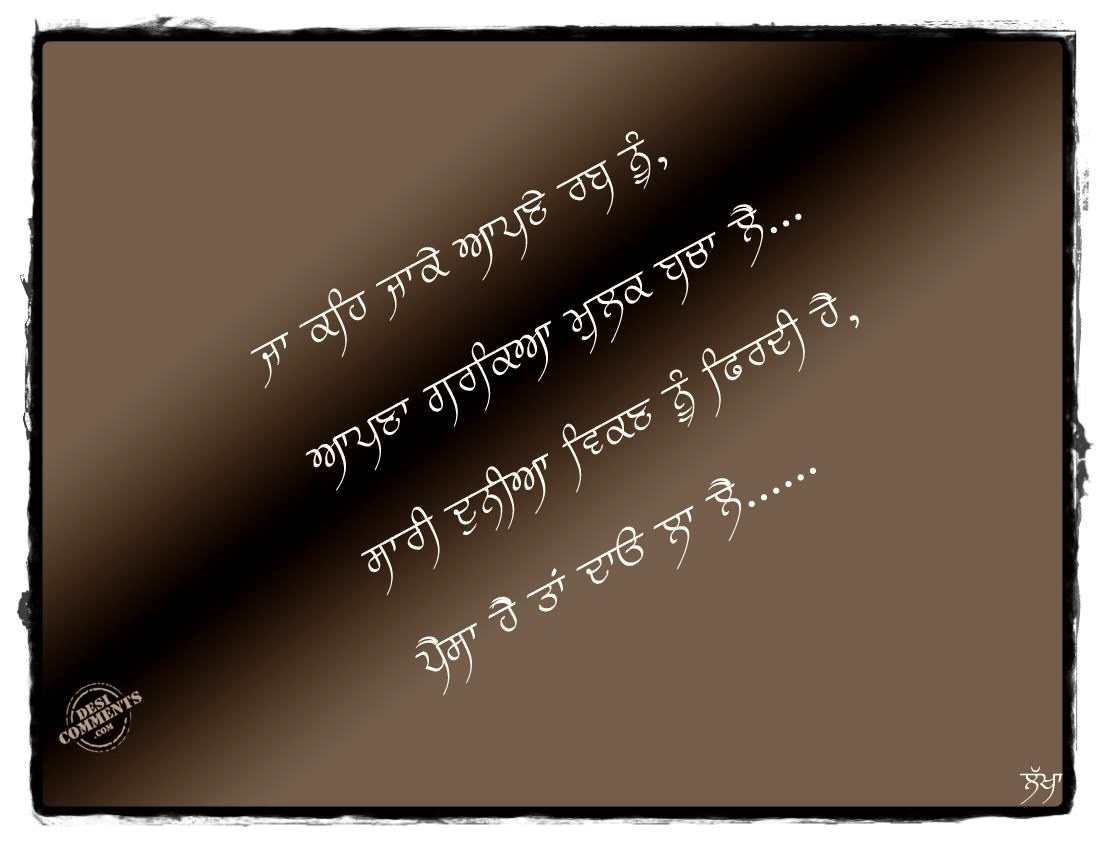 ਜਾ ਕਹਿ ਜਾਕੇ ਆਪਣੇ ਰਬ ਨੂੰ,
ਆਪਣਾ ਗਰਕਿਆ ਮੁਲਕ ਬਚਾ ਲੈ...
ਸਾਰੀ ਦੁਨੀਆ ਵਿਕਣ ਨੂੰ ਫਿਰਦੀ ਹੈ,
ਪੈਸਾ ਹੈ ਤਾਂ ਦਾਓ ਲਾ ਲੈ......
DESI
COMMENTS
.COM
ਲੱਖਾ